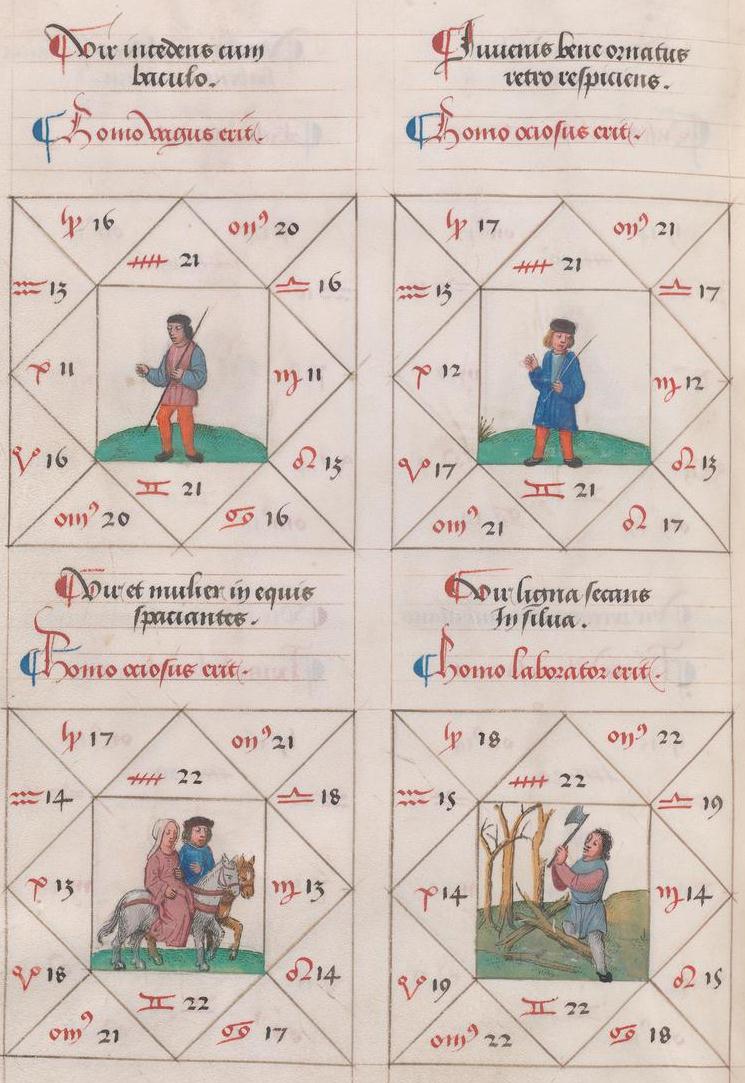 Vir incedens cum
baculo.
Homo vagus erit.
♑ 16
om⁹ 20
♐ 21
♒ 13
♎ 16
♓ 11
♍ 11
♈ 16
♌ 13
♊ 21
om⁹ 20
♋ 16
Iuuenis bene ornatus
retro respiciens.
Homo ociosus erit.
♑ 17
om⁹ 21
♐ 21
♒ 13
♎ 17
♓ 12
♍ 12
♈ 17
♌ 13
♊ 21
om⁹ 21
♌ 17
Vir et mulier in equis
spaciantes.
Homo ociosus erit.
♑ 17
om⁹ 21
♐ 22
♒ 14
♎ 18
♓ 13
♍ 13
♈ 18
♌ 14
♊ 22
om⁹ 21
♋ 17
Vir ligna secans
In silua.
Homo laborator erit.
♑ 18
om⁹ 22
♐ 22
♒ 15
♎ 19
♓ 14
♍ 14
♈ 19
♌ 15
♊ 22
om⁹ 22
♋ 18